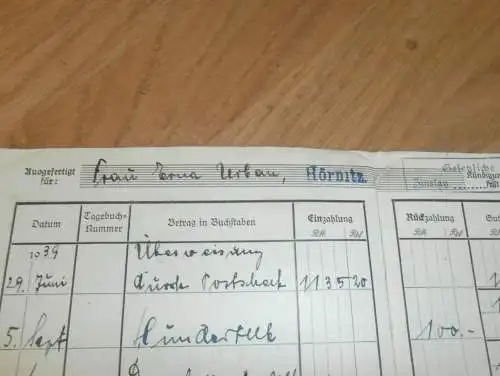 Ausgefertigt für: Frau Erna Urban, Hörnitz.
Gesetzliche
Kündigu
Zinslau
frist
Datum Tagebuch-Nummer Betrag in Buchstaben Einzahlung RM Rpf Rückzahlung RM Rpf Gut
1939 Überweisung
29. Juni durch Postscheck 1135 20
5. Sept Hundert 100.-